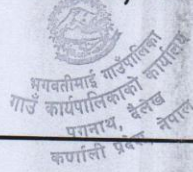 भगवतीमाई गाउँपालिका
गाउँ कार्यपालिकाको कार्यालय
परानाथ, दैलेख
कर्णाली प्रदेश, नेपाल